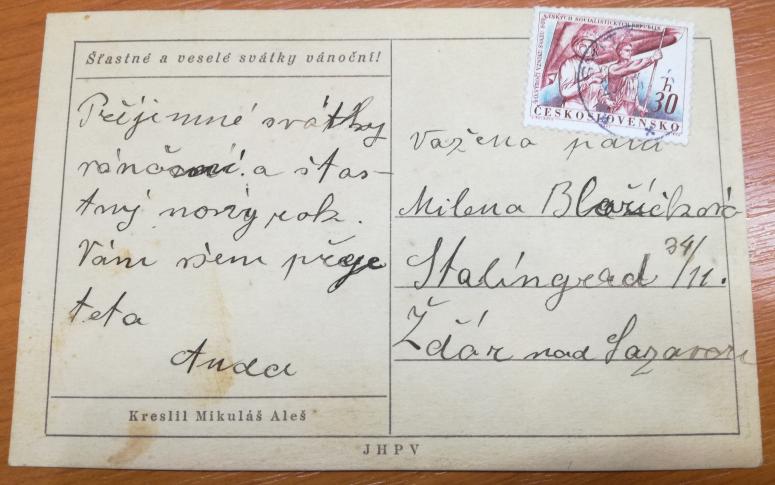 Šťastné a veselé svátky vánoční!
Příjemné svátky
vánoční a šťas-
tný nový rok.
Vám všem přeje
teta
Anda
Kreslil Mikuláš Aleš
ČESKÝCH SOCIALISTICKÝCH REPUBLIK
30 h
ČESKOSLOVENSKO
Vážena paní
Milena Blažíčková
Stalingrad 34/11.
Žďár nad Sazavou
JHPV